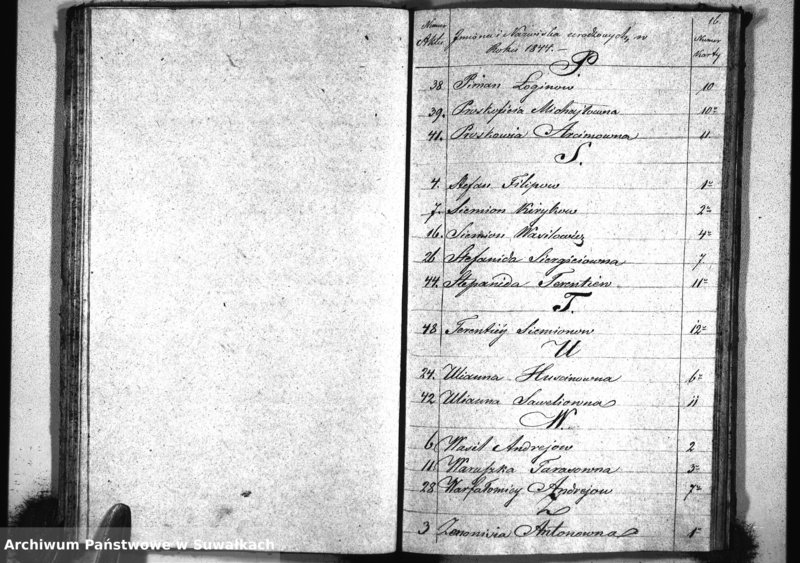 16
Numer Aktu Imiona i Nazwiska urodzonych w Roku 1844. — Numer Karty
P.
38. Piman Loginow 10
39. Praskyficia Michajłowna 10
41. Praskowia Arcimowna 11
S.
4. Stefan Filipow 1
7. Siemion Kirykow 2
16. Siemion Wasilowicz 4
26 Stefanida Siergiciowna 7
44. Stepanida Terentiew 11
T.
48. Terentiéy Siemionow 12
U
24. Ulianna 6
42 Ulianna Saweliowna 11
W.
6 Wasil Andrejow 2
11 Waruszka Tarasowna 3
28 Warfałomiéy Andrejow 7
Z
3 Zenowia Antonowna 1
Archiwum Państwowe w Suwałkach